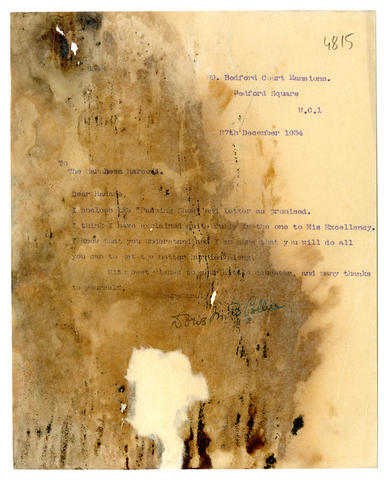 4815
Bedford Court Mansions.
Bedford Square
W.C.1
27th December 1934
To
The Marchesa Marconi.
Dear Madame,
I enclose the "Passing Show" and letter as promised.
I think I have explained quite fully in the one to His Excellency.
I know that you understand and I am sure that you will do all
you can to get the matter along.
With best wishes to your little daughter, and many thanks
to yourself.
Doris